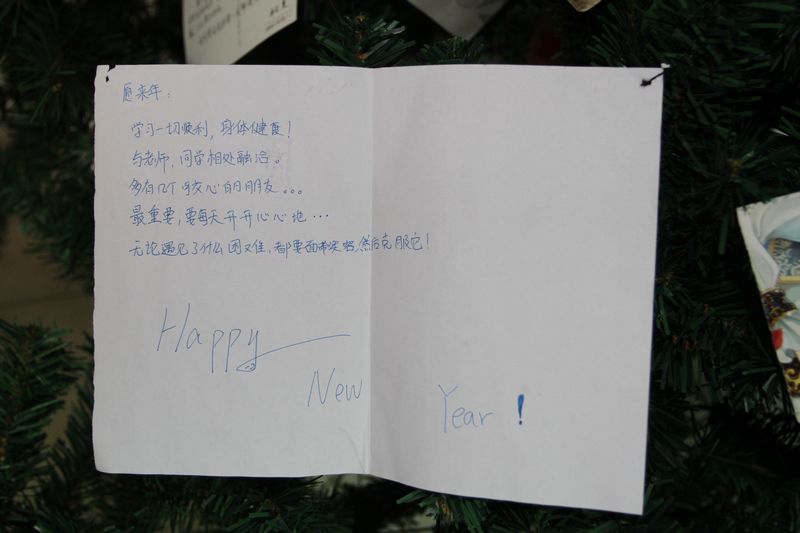 愿来年:
学习一切顺利,身体健康!
与老师,同学相处融洽。
多有几个交心的朋友。。。
最重要,要每天开开心心地…
无论遇见了什么困难,都要面带笑容,然后克服它!
Happy
New
Year !